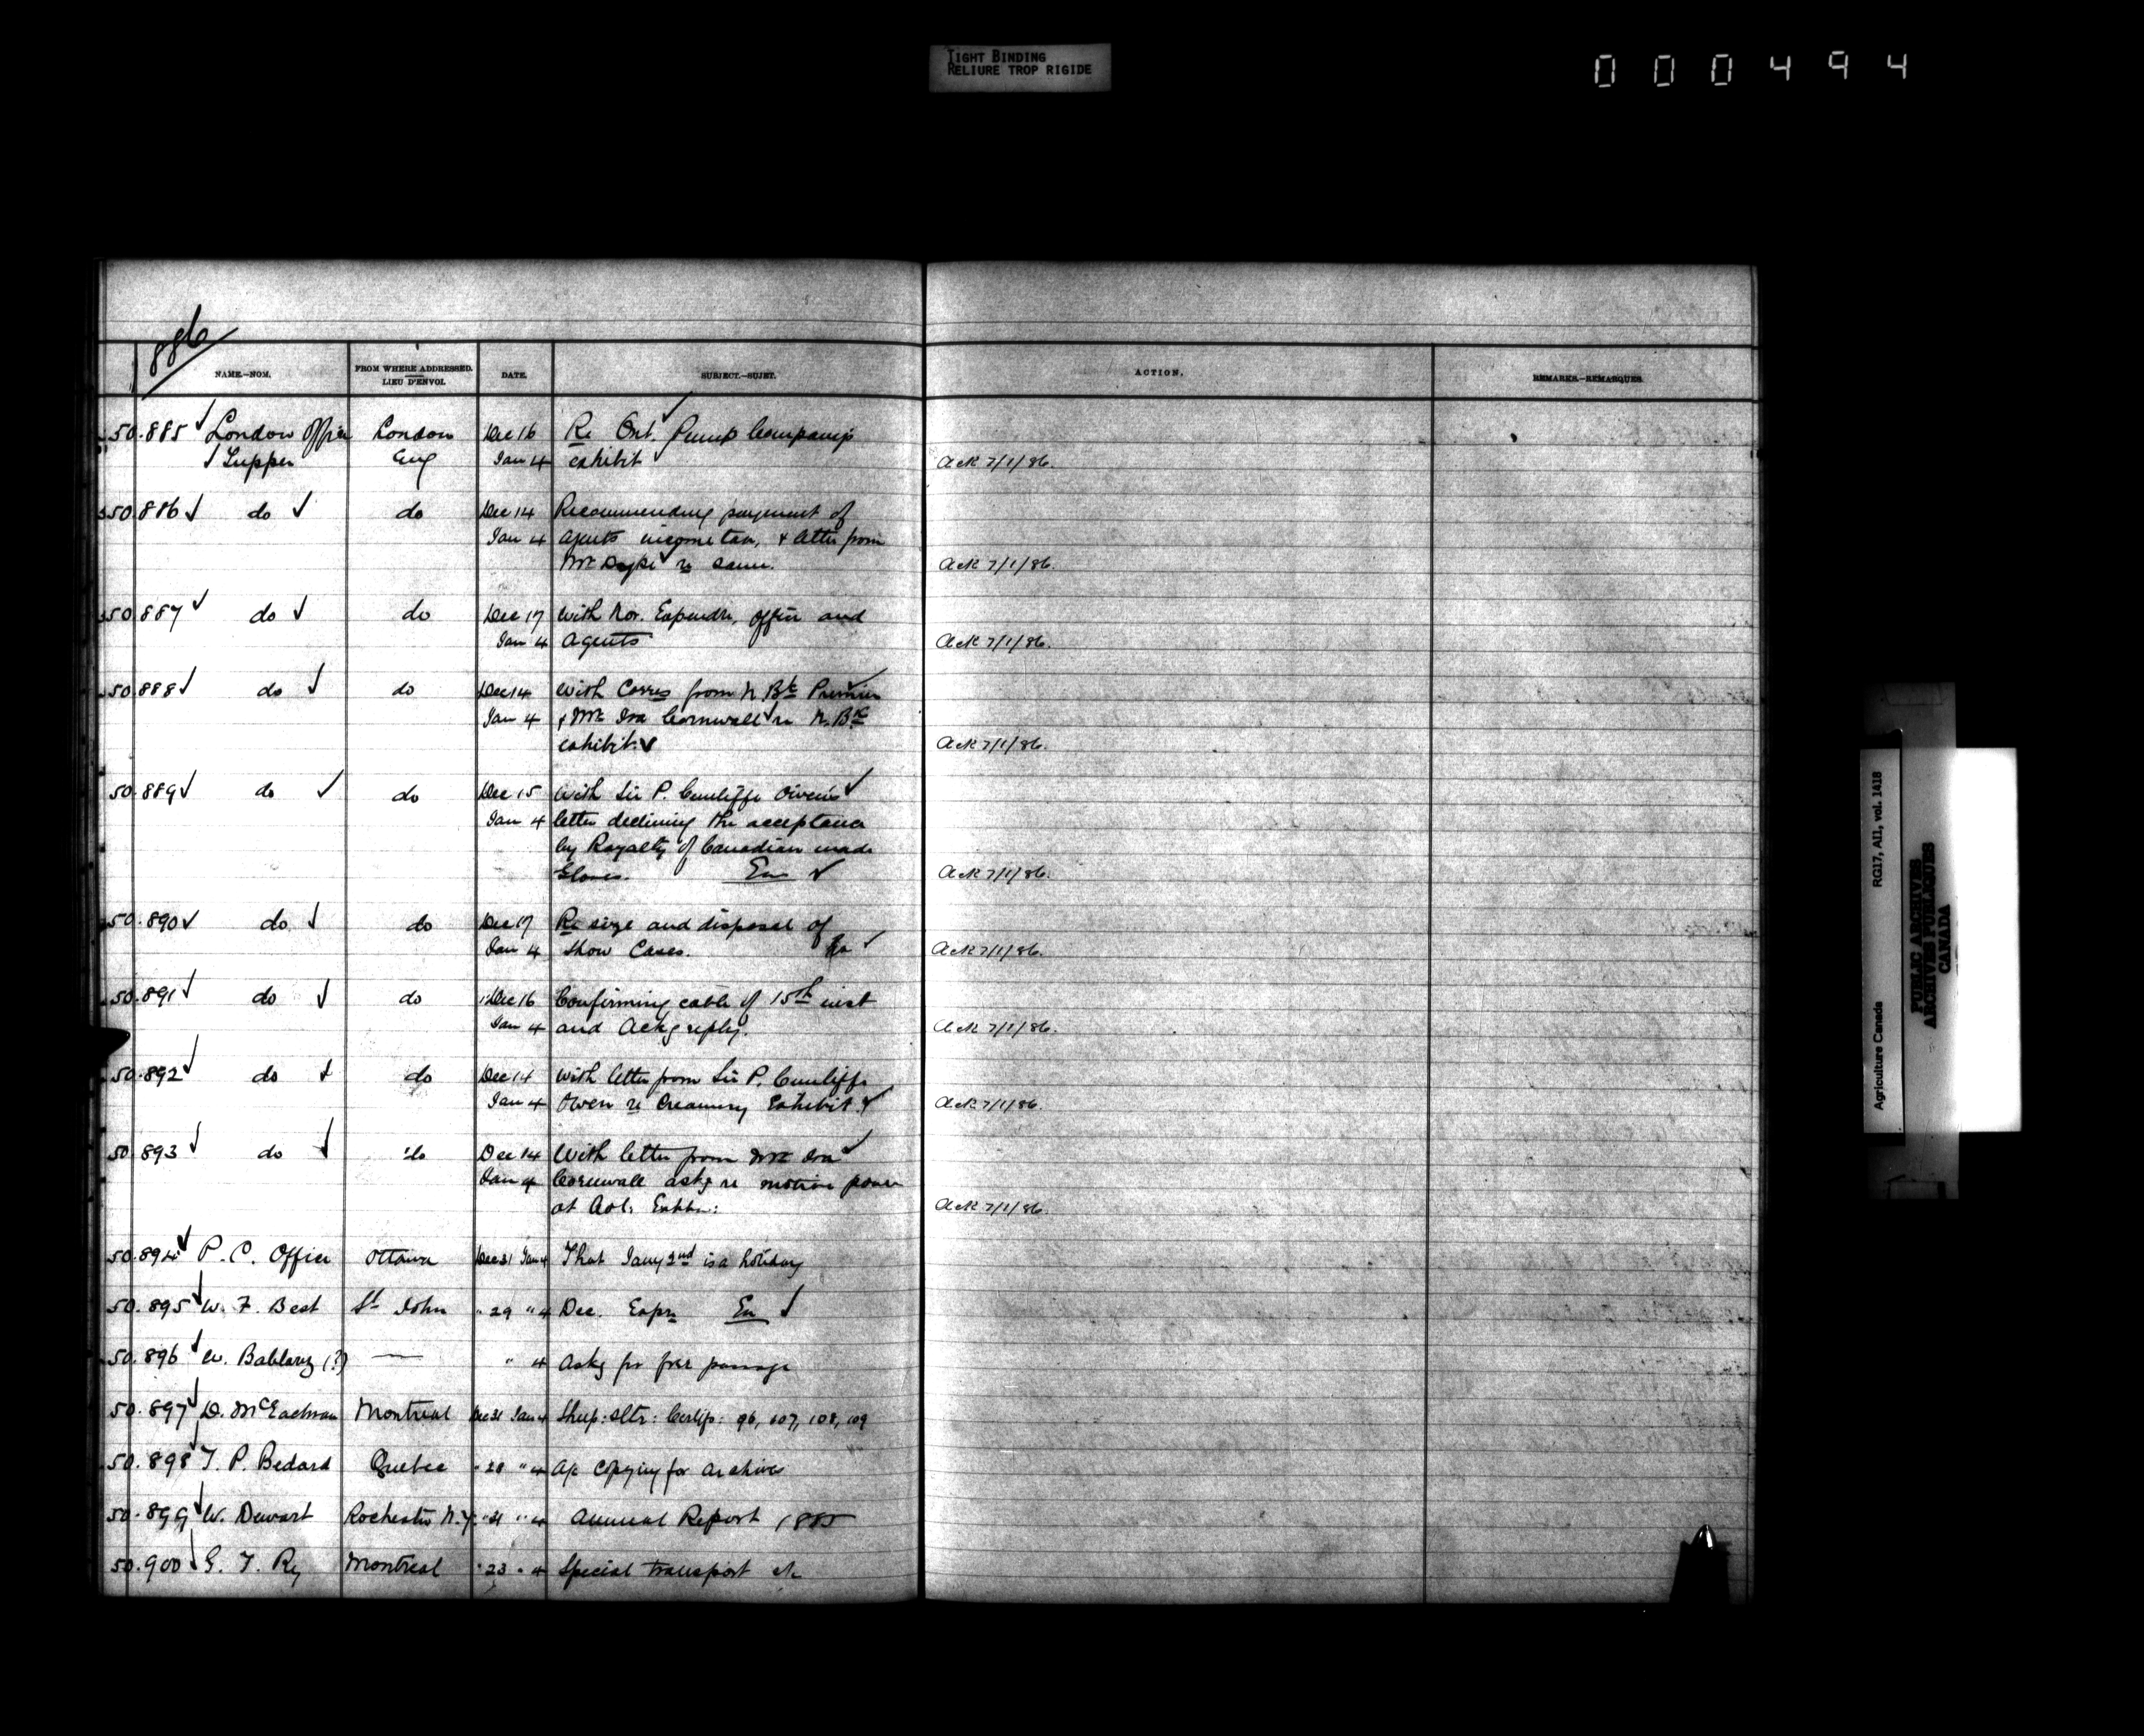 TIGHT BINDING
RELIURE TROP RIGIDE
000494
886
NAME.—NOM. FROM WHERE ADDRESSED. LIEU D'ENVOI. DATE. SUBJECT.—SUJET. ACTION. REMARKS.—REMARQUES.
50.885 London Office London Dec 16 Re Ont. Pump Company's
Tupper Eng Jan 4 exhibit Ack 7/1/86.
50.886 do do Dec 14 Recommending payment of
Jan 4 agents income tax, & letter from
Mr Dyke re same. Ack 7/1/86.
50.887 do do Dec 17 with Nov. Expendre, office and
Jan 4 agents Ack 7/1/86.
50.888 do do Dec 14 with Corres from N. Bk Premier
Jan 4 & Mr Ira Cornwall re N. Bk
exhibit Ack 7/1/86.
50.889 do do Dec 15 with Sir P. Cunliffe Owen's
Jan 4 letter declining the acceptance
by Royalty of Canadian made
Gloves. En Ack 7/1/86.
50.890 do do Dec 17 Re size and disposal of
Jan 4 Show Cases. Ack 7/1/86.
50.891 do do Dec 16 Confirming cable of 15th inst
Jan 4 and Ackg reply. Ack 7/1/86.
50.892 do do Dec 14 with letter from Sir P. Cunliffe
Jan 4 Owen re Creamery Exhibit. Ack 7/1/86.
50.893 do do Dec 14 With letter from Mr Ira
Jan 4 Cornwall askg re motive power
at Col: Exhbn: Ack 7/1/86.
50.894 P. C. Office Ottawa Dec 31 Jan 4 That Jany 2nd is a holiday
50.895 W. F. Best St John " 29 " 4 Dec. Expn En
50.896 W. Bablarz (?) — " 4 Askg for free passage
50.897 D. McEachran Montreal Dec 31 Jan 4 Sheep: Sltr: Certifs: 96, 107, 108, 109
50.898 T. P. Bedard Quebec " 28 " 4 A/c Copying for archives
50.899 W. Dewart Rochester N.Y. " 31 " 4 Annual Report 1885
50.900 G. T. Ry Montreal " 23 " 4 Special transport a/c
Agriculture Canada RG17, AII, vol. 1418
PUBLIC ARCHIVES
ARCHIVES PUBLIQUES
CANADA